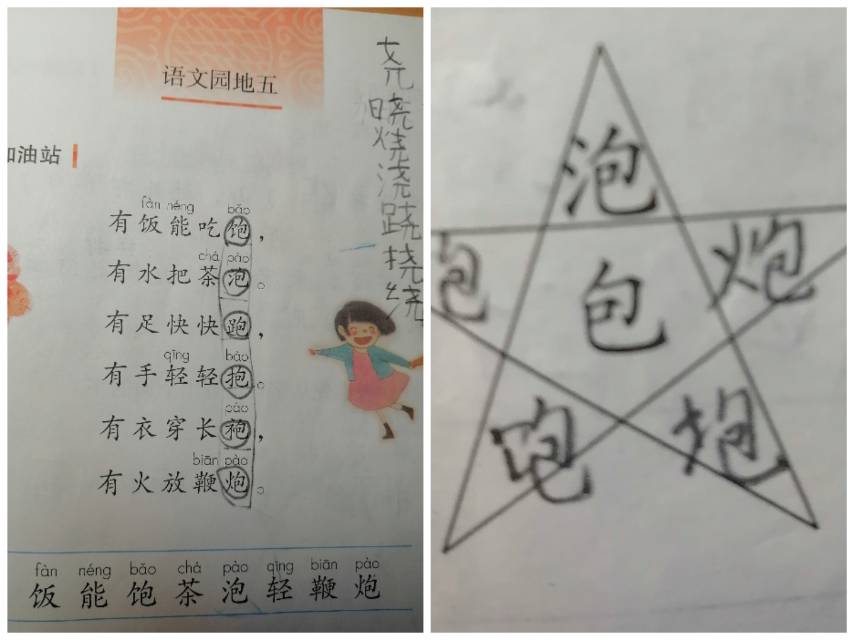 语文园地五
油站
fàn néng bǎo
有饭能吃饱，
chá pào
有水把茶泡。
有足快快跑，
qīng bào
有手轻轻抱。
páo
有衣穿长袍，
biān pào
有火放鞭炮。
fàn néng bǎo chá pào qīng biān pào
饭 能 饱 茶 泡 轻 鞭 炮
尧
晓
烧
浇
跷
挠
绕
泡
炮
包
饱 抱